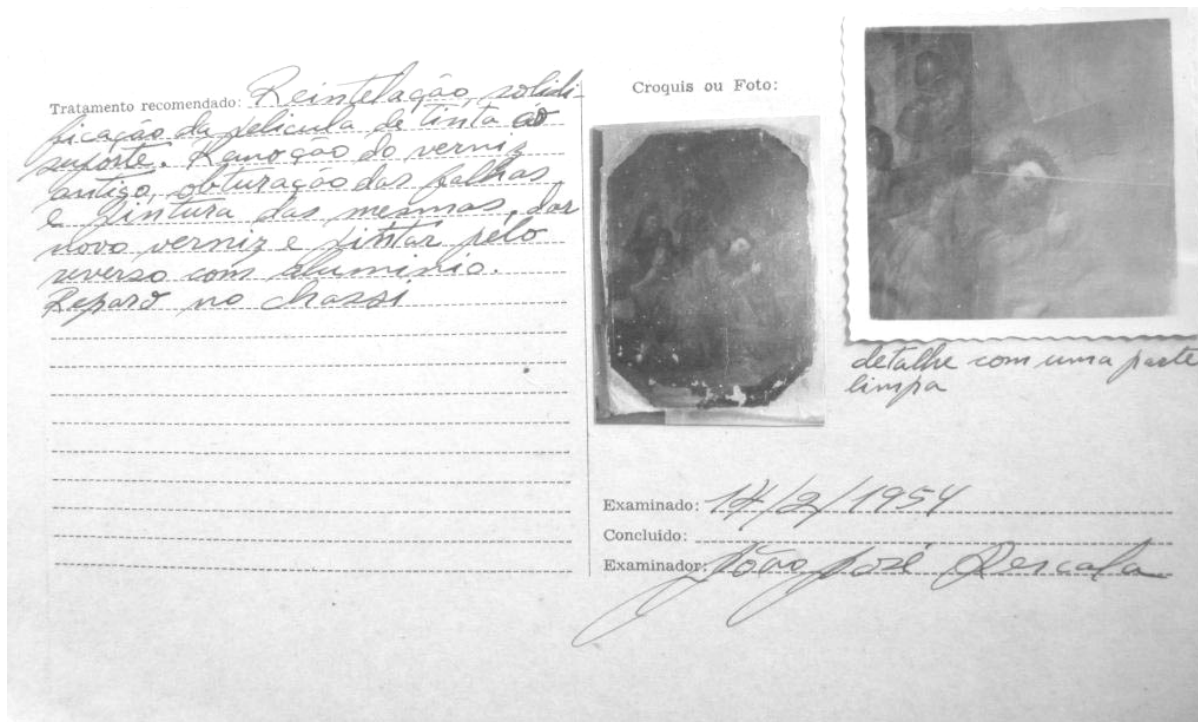 Tratamento recomendado: Reintelação, solidi-
ficação da pelicula da tinta ao
suporte. Remoção do verniz
antigo, obturação das falhas
e pintura das mesmas, dar
novo verniz e pintar pelo
reverso com aluminio.
Reparo no chassi
Croquis ou Foto:
detalhe com uma parte
limpa
Examinado: 14/2/1954
Concluido:
Examinador: João José Rescala